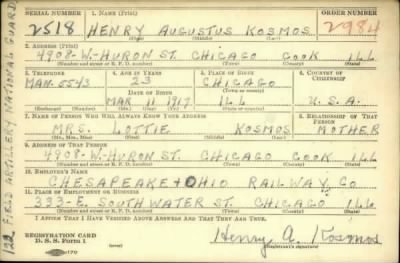 SERIAL NUMBER 1. NAME (Print) ORDER NUMBER
2518 HENRY AUGUSTUS KOSMOS 2984
(First) (Middle) (Last)
2. ADDRESS (Print)
4908-W-HURON ST. CHICAGO COOK ILL
(Number and street or R. F. D. number) (Town) (County) (State)
3. TELEPHONE 4. AGE IN YEARS 5. PLACE OF BIRTH 6. COUNTRY OF CITIZENSHIP
MAN-5543 23 CHICAGO
DATE OF BIRTH (Town or county)
MAR 11 1917 ILL U.S.A.
(Exchange) (Number) (Mo.) (Day) (Yr.) (State or country)
7. NAME OF PERSON WHO WILL ALWAYS KNOW YOUR ADDRESS 8. RELATIONSHIP OF THAT PERSON
MRS. LOTTIE KOSMOS MOTHER
(Mr., Mrs., Miss) (First) (Middle) (Last)
9. ADDRESS OF THAT PERSON
4908-W-HURON ST. CHICAGO COOK ILL
(Number and street or R. F. D. number) (Town) (County) (State)
10. EMPLOYER'S NAME
CHESAPEAKE + OHIO RAILWAY CO
11. PLACE OF EMPLOYMENT OR BUSINESS
333-E. SOUTH WATER ST. CHICAGO ILL
(Number and street or R. F. D. number) (Town) (County) (State)
I AFFIRM THAT I HAVE VERIFIED ABOVE ANSWERS AND THAT THEY ARE TRUE.
REGISTRATION CARD
D. S. S. Form 1
Henry A. Kosmos
(Registrant's signature)
122 FIELD ARTILLERY NATIONAL GUARD